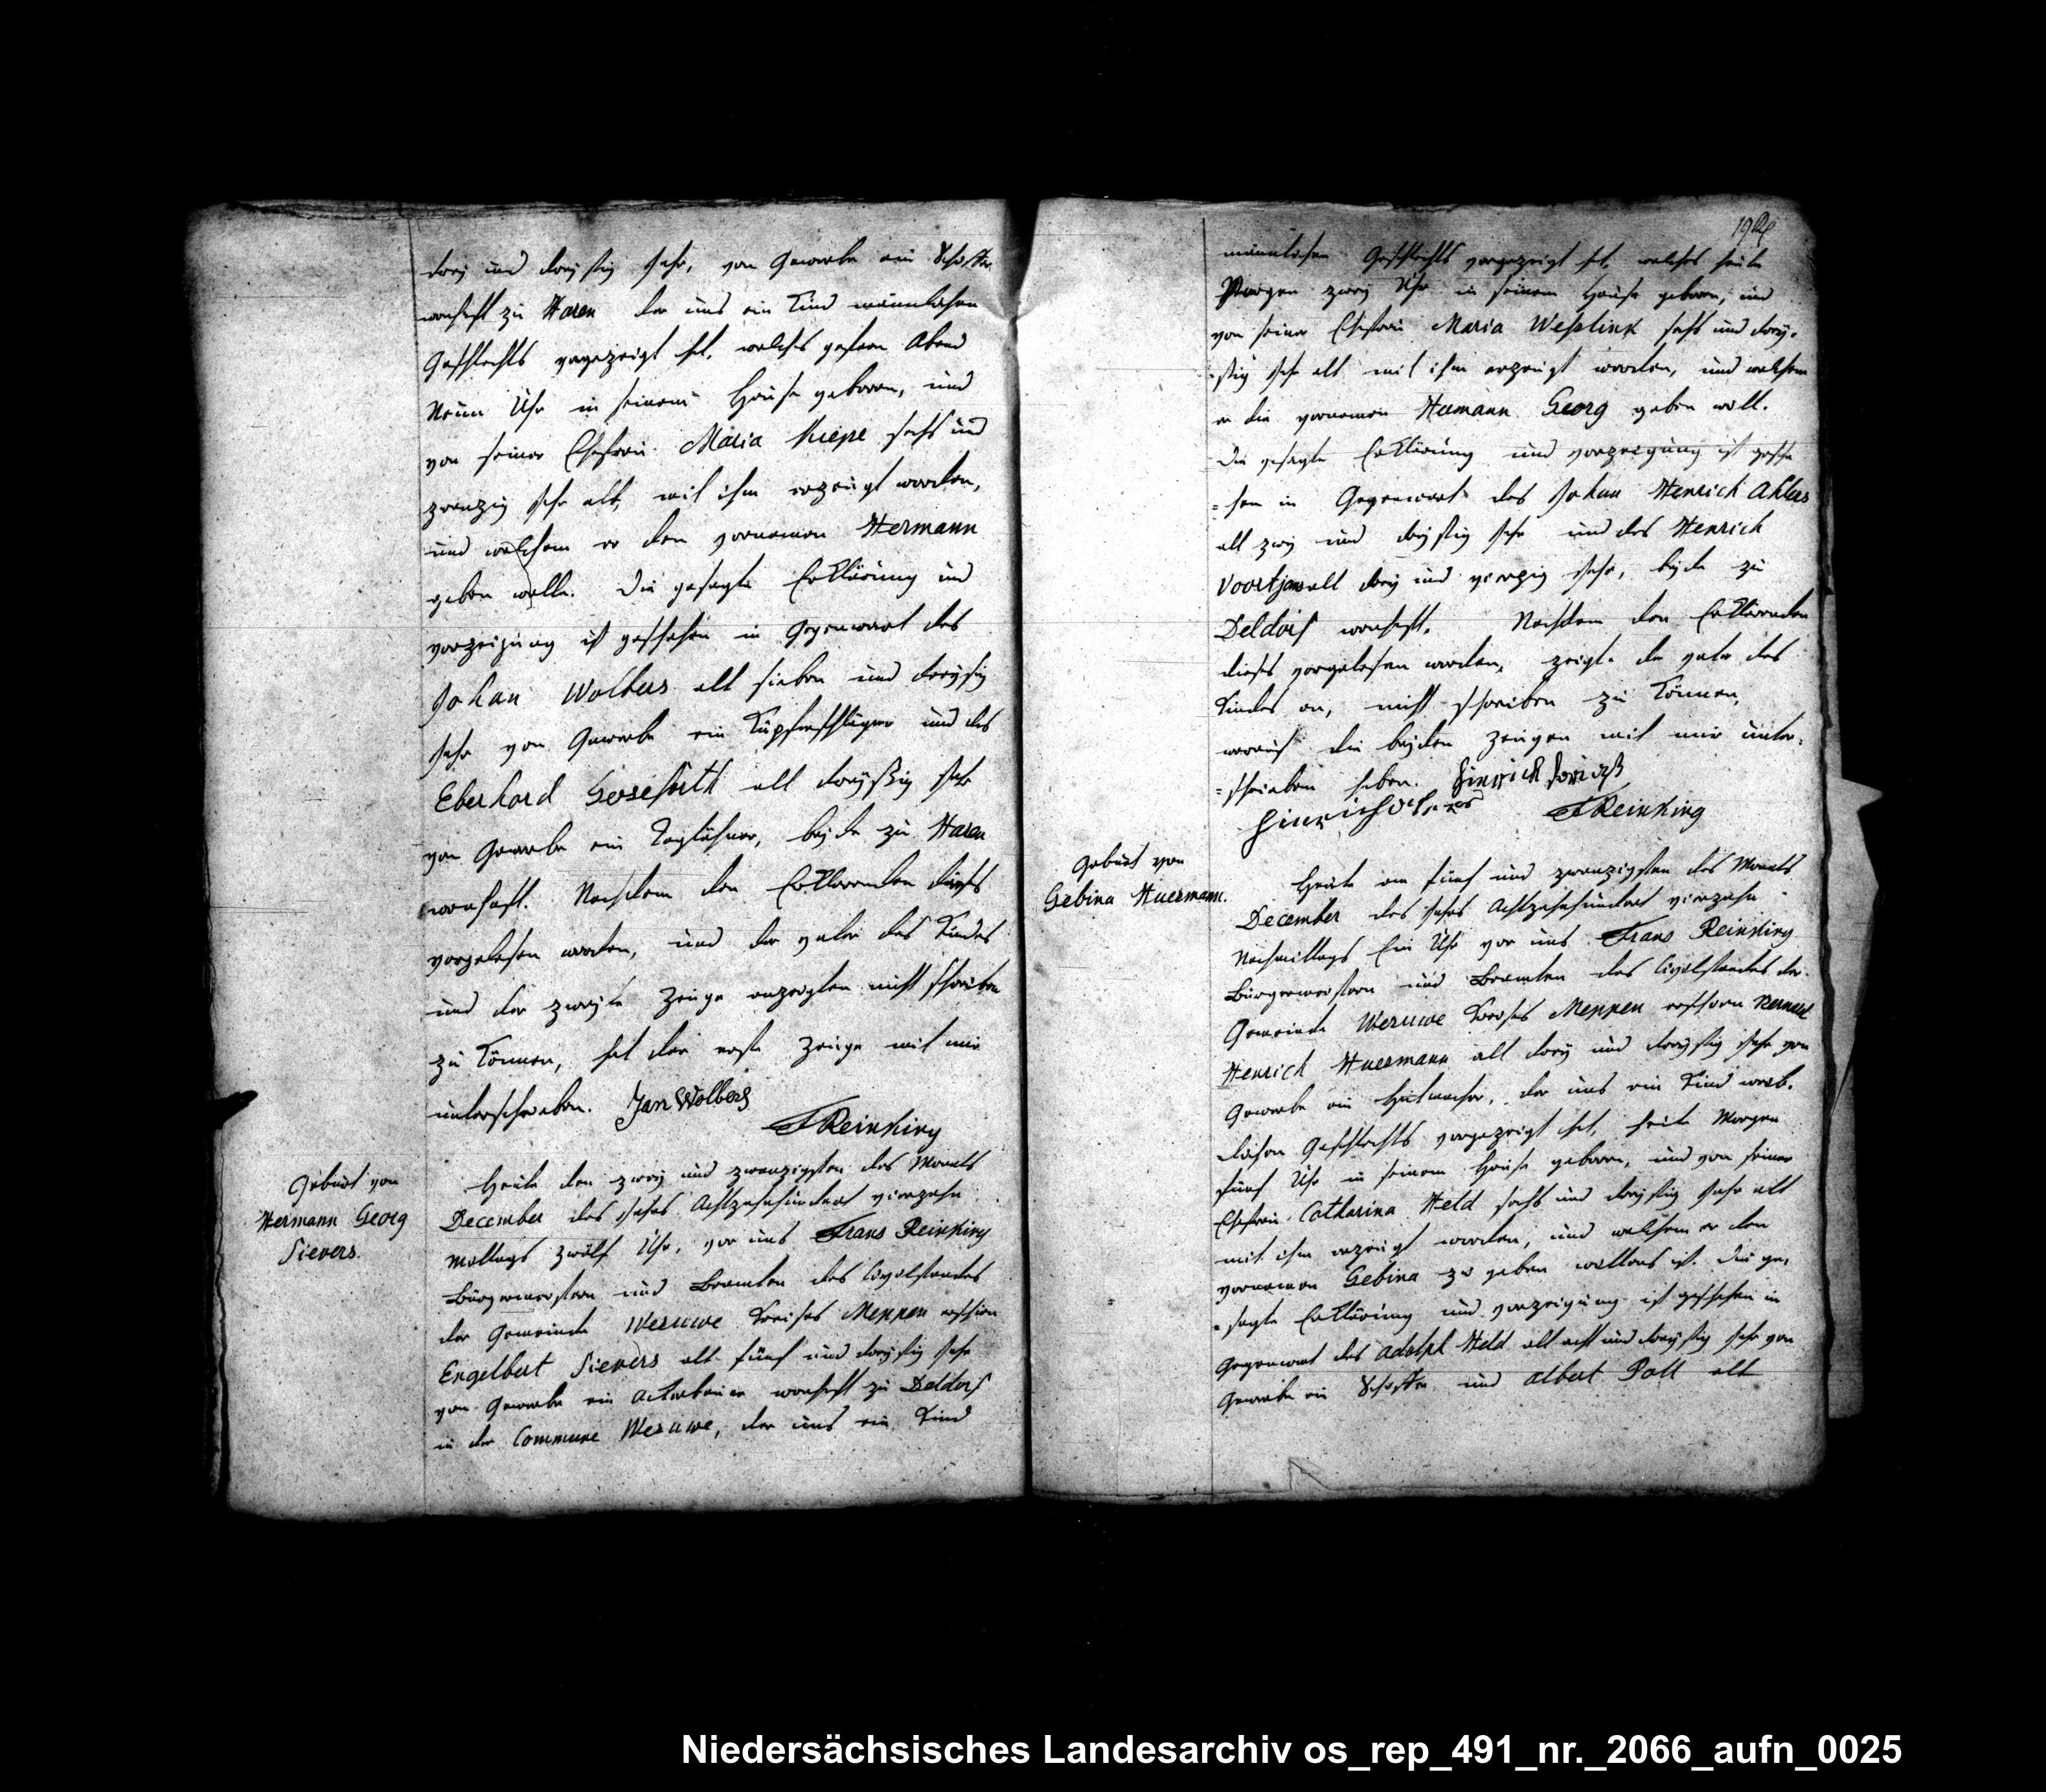 drey und dreyssig Jahr, von Gewerbe ein Schuster
wonhaft zu Haren der uns ein Kind männlichen
Geschlechts vorgezeigt hat, welches gestern Abend
Neun Uhr in seinem Hause geboren, und
von seiner Ehefrau Maria Kiepe sechs und
zwanzig Jahr alt, mit ihm erzeugt worden,
und welchem er den vornamen Hermann
geben wolle. Die gesagte Erklärung und
vorzeigung ist geschehen in Gegenwart des
Johan Wolbers alt sieben und dreyssig
Jahr von Gewerbe ein Kupferschläger und des
Eberhard alt dreyßig Jahr
von Gewerbe ein Taglöhner, beyde zu Haren
wonhaft. Nachdem den Erklärenden dieses
vorgelesen worden, und der vater des Kindes
und der zweyte Zeuge anzeigten nicht schreiben
zu können, hat der erste Zeuge mit mir
unterschrieben. Jan Wolbers
FReinking
Geburt von
Hermann Georg
Sievers.
Heute den zwey und zwanzigsten des Monats
December des Jahrs Achtzehnhundert vierzehn
Mittags zwölf Uhr, vor uns Frans Reinking
Bürgermeistern und Beamten des Civilstandes
der Gemeinde Wesuwe Kreises Meppen erschien
Engelbert Sievers alt fünf und dreyssig Jahr
von Gewerbe ein Ackerbauer wonhaft zu Deldorf
in der Commune Wesuwe, der uns ein Kind
männlichen Geschlechts vorgezeigt hat, welches heute
Morgen zwey Uhr in seinem Hause geboren, und
von seiner Ehefrau Maria Wesslink sechs und drey-
ssig Jahr alt mit ihm erzeugt worden, und welchem
er die vornamen Hermann Georg geben will.
Die gesagte Erklärung und vorzeigung ist gesche
=hen in Gegenwart des Johan Henrich Ahlers
alt zwey und dreyssig Jahr und des Henrich
alt drey und vierzig Jahr, beyde zu
Deldorf wonhaft. Nachdem den Erklärenden
dieses vorgelesen worden, zeigte der vater des
Kindes an, nicht schreiben zu können,
worauf die beyden Zeugen mit mir unter-
=schrieben haben. Hinrich
Hinrich
FReinking
Geburt von
Gebina Huermann.
Heute am fünf und zwanzigsten des Monats
December des Jahrs Achtzehnhundert vierzehn
Nachmittags Ein Uhr vor uns Frans Reinking
Bürgermeistern und Beamten des Civilstandes der
Gemeinde Wesuwe Kreises Meppen erschien Bernard
Henrich Huermann alt drey und dreyssig Jahr von
Gewerbe ein Hutmacher, der uns ein Kind weib-
lichen Geschlechts vorgezeigt hat, heute Morgen
fünf Uhr in seinem Hause geboren, und von seiner
Ehefrau Catharina Held sechs und dreyssig Jahr alt
mit ihm erzeugt worden, und welchem er den
vornamen Gebina zu geben willens ist. Die ge-
=sagte Erklärung und vorzeigung ist geschehen in
Gegenwart des Adolph Held alt acht und dreyssig Jahr von
Gewerbe ein Schuster und Albert Pott alt
Niedersächsisches Landesarchiv os_rep_491_nr._2066_aufn_0025